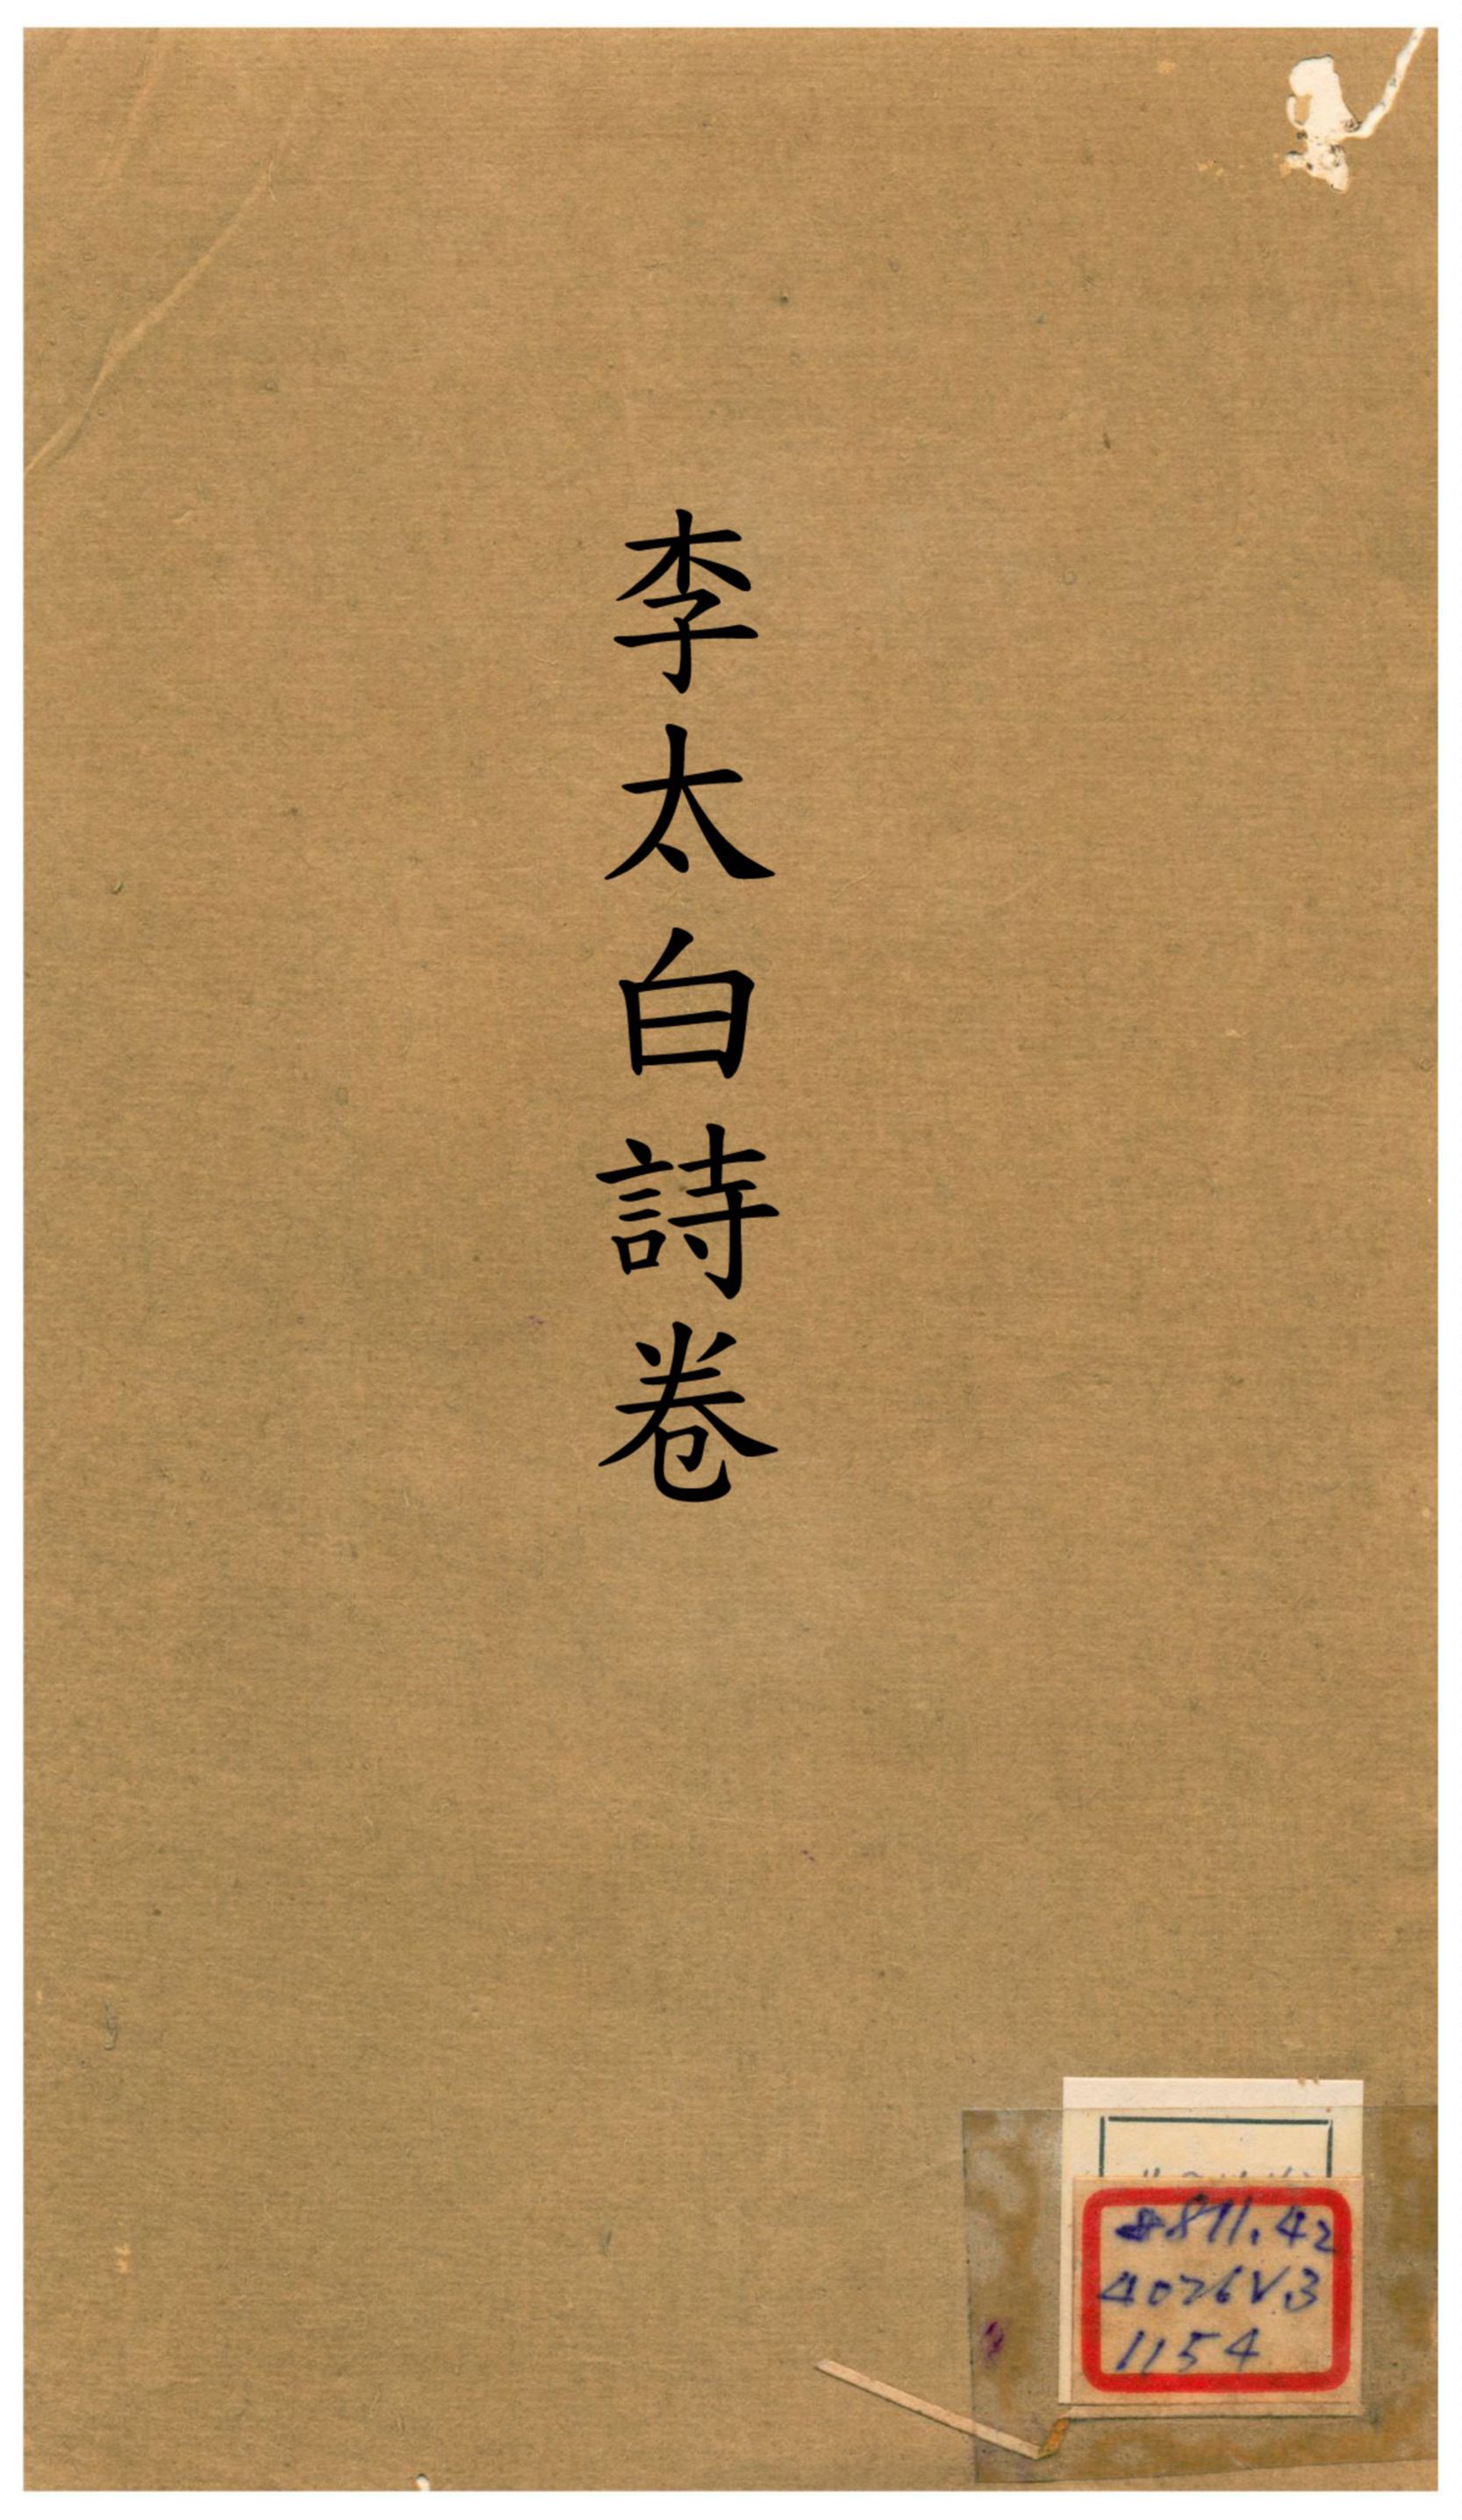 李太白詩卷
811.42
4026V.3
1154